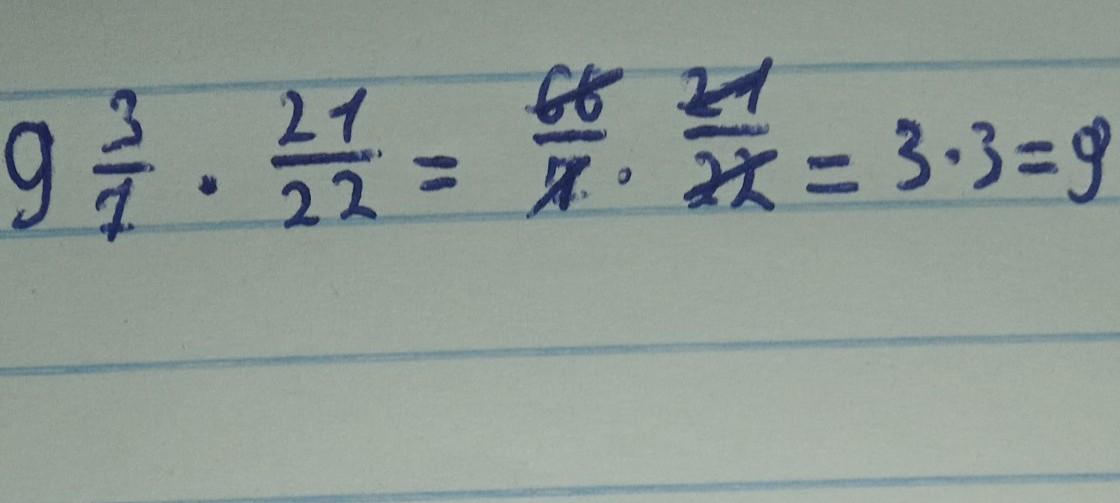 9 3/7 · 21/22 = 66/7 · 21/22 = 3·3=9